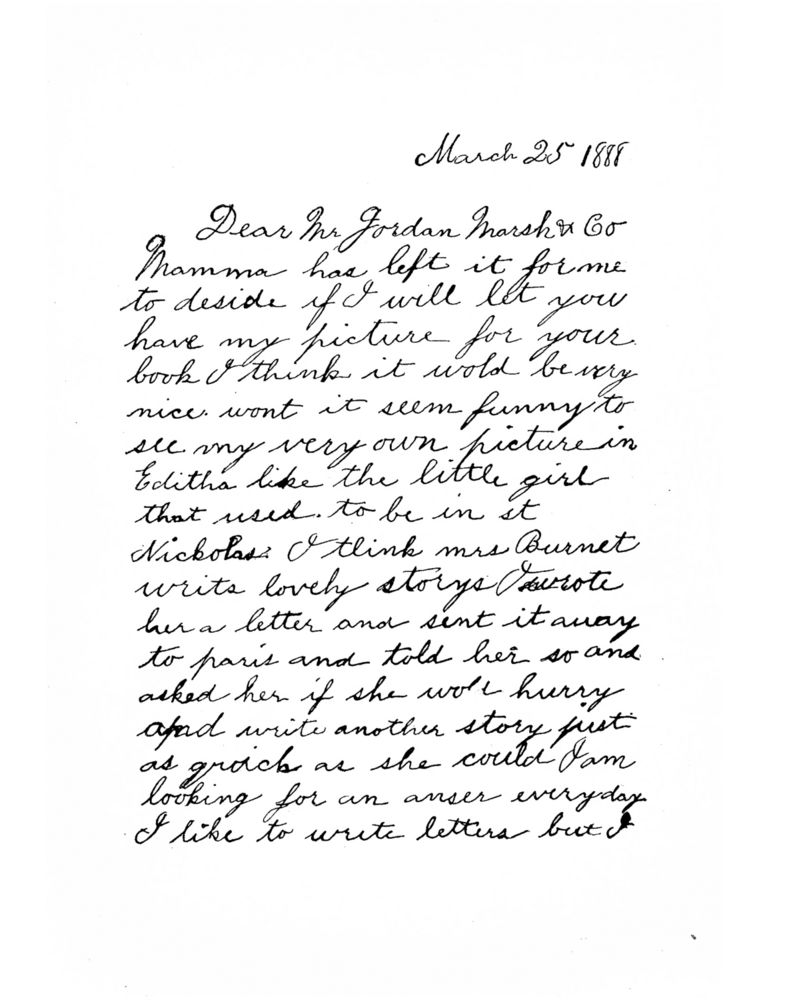 March 25 1888
Dear Mr Jordan Marsh & Co
Mamma has left it for me
to deside if I will let you
have my picture for your
book I think it wold be very
nice. wont it seem funny to
see my very own picture in
Editha like the little girl
that used. to be in st
Nickolas. I think mrs Burnet
writs lovely storys I wrote
her a letter and sent it away
to paris and told her so and
asked her if she wo'l hurry
and write another story just
as quick as she could I am
looking for an anser everyday
I like to write letters but I